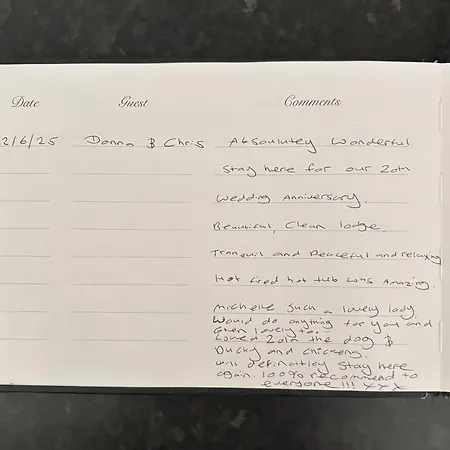 Date Guest Comments
2/6/25 Donna & Chris Absoulutey Wonderful
Stay here for our 20th
Wedding Anniversary.
Beautiful, Clean lodge.
Tranquil and Peaceful and relaxing
Hot fired hot tub was Amazing.
Michelle Such a lovely lady.
Would do anything for you and
lovely to.
Loved Zola the dog &
Ducky and chickens.
will definatley Stay here
again. 100% recommend to
everyone!!! xxx